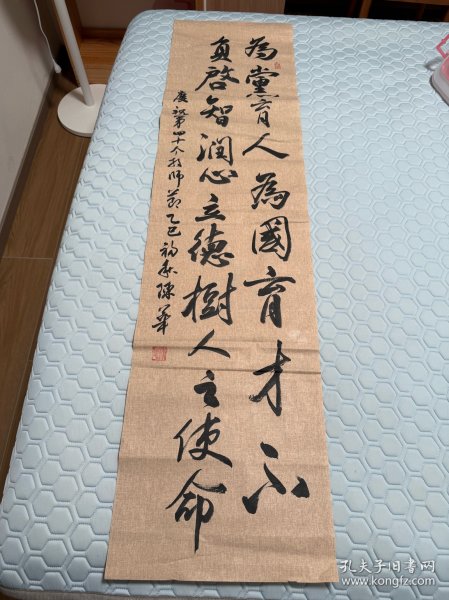 為黨育人為國育才不
負啓智潤心立德樹人之使命
慶祝第四十个教师节乙巳初秋陈华
孔夫子旧书网
www.kongfz.com